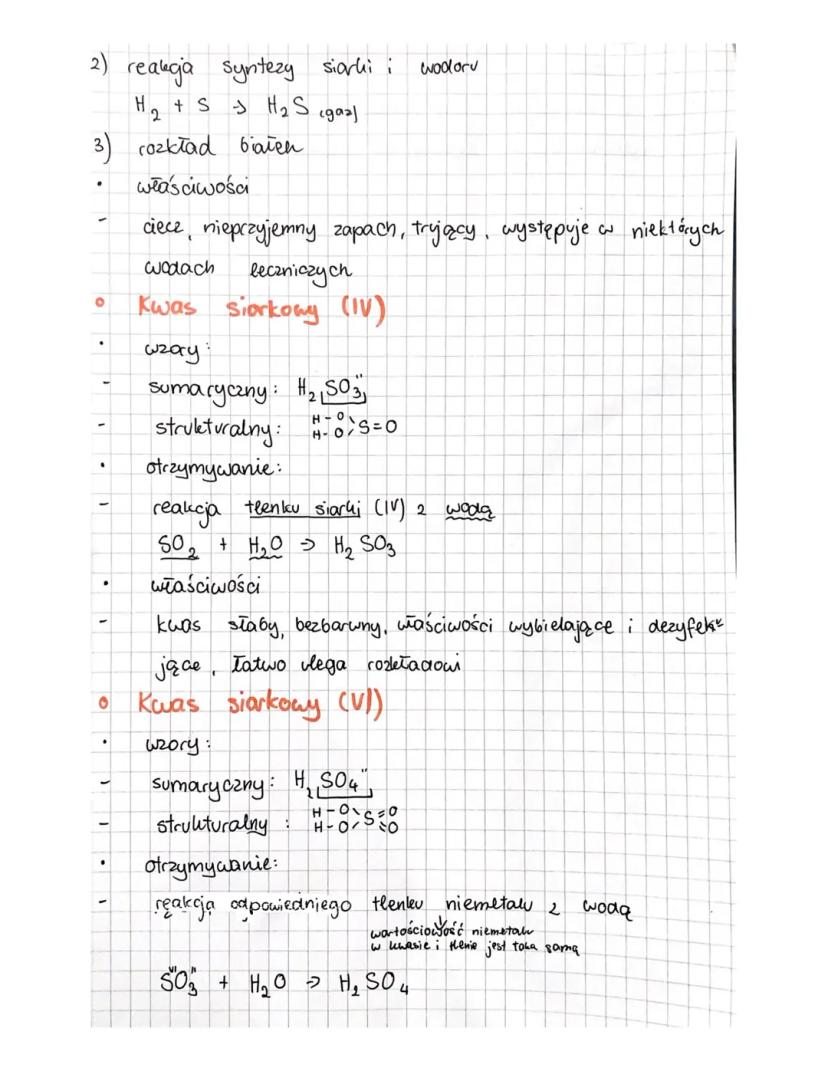 2) reakcja syntezy siarki i wodoru
H₂ + S → H₂S (gaz)
3) rozkład białek
• właściwości
- ciecz, nieprzyjemny zapach, trujący, występuje w niektórych
wodach leczniczych
o Kwas siarkowy (IV)
• wzory:
- sumaryczny: H₂SO₃ᴵᴵ
- strukturalny: H-O\
H-O/S=O
• otrzymywanie:
- reakcja tlenku siarki (IV) z wodą
SO₂ + H₂O → H₂SO₃
• właściwości
- kwas słaby, bezbarwny, właściwości wybielające i dezyfeku
jące, łatwo ulega rozkładowi
o Kwas siarkowy (VI)
• wzory:
- sumaryczny: H₂SO₄ᴵᴵ
- strukturalny: H-O\S=O
H-O/ =O
• otrzymywanie:
- reakcja odpowiedniego tlenku niemetalu z wodą
wartościowość niemetalu
w kwasie i tlenie jest taka sama
SⱽᴵO₃ᴵᴵ + H₂O → H₂SO₄